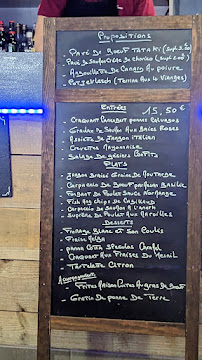 Propositions
Pavé De Boeuf Tataki (sup 2.50)
Pavé De Saumon Crème De chorizo (sup 2.00)
Aiguillette De Canard Au poivre
(Terrine Aux 10 Viandes)
Entrées
15,50 €
Croquant Camembert pommes Calvados
Gravlax De Saumon Aux Baies Roses
Assiette De Jambon italien
Crevettes Mayonnaise
Salade De gésiers Confits
Plats
Jambon Braisé Graine De Moutarde
Carpaccio De Boeuf parmesan Basilic
Filet De Poulet Sauce Normande
Fish And chips De Cabillaud
Carpaccio De Saumon A L'aneth
Suprême De Poulet Aux Morilles
Desserts
Fromage Blanc et Son Coulis
Fraise Melba
panna Cotta Spéculos Caramel
Aux Fraises Du Mesnil
Tartelette Citron
Accompagnements
Frites Maison
Gratin De pomme De Terre